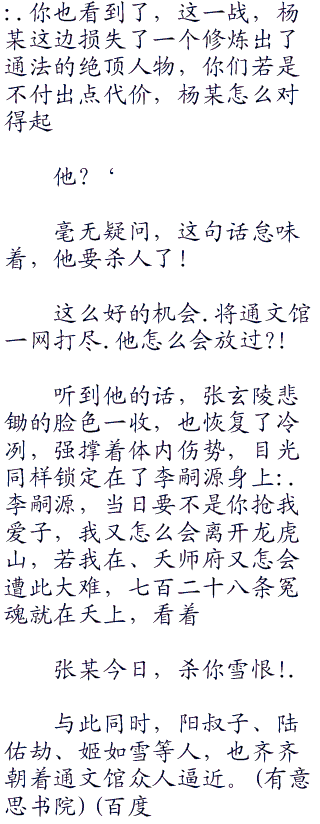 :.你也看到了，这一战，杨
某这边损失了一个修炼出了
通法的绝顶人物，你们若是
不付出点代价，杨某怎么对
得起
他？‘
毫无疑问，这句话怠味
着，他要杀人了！
这么好的机会.将通文馆
一网打尽.他怎么会放过?!
听到他的话，张玄陵悲
锄的脸色一收，也恢复了冷
冽，强撑着体内伤势，目光
同样锁定在了李嗣源身上:.
李嗣源，当日要不是你抢我
爱子，我又怎么会离开龙虎
山，若我在、天师府又怎会
遭此大难，七百二十八条冤
魂就在天上，看着
张某今日，杀你雪恨!.
与此同时，阳叔子、陆
佑劫、姬如雪等人，也齐齐
朝着通文馆众人逼近。(有意
思书院)(百度